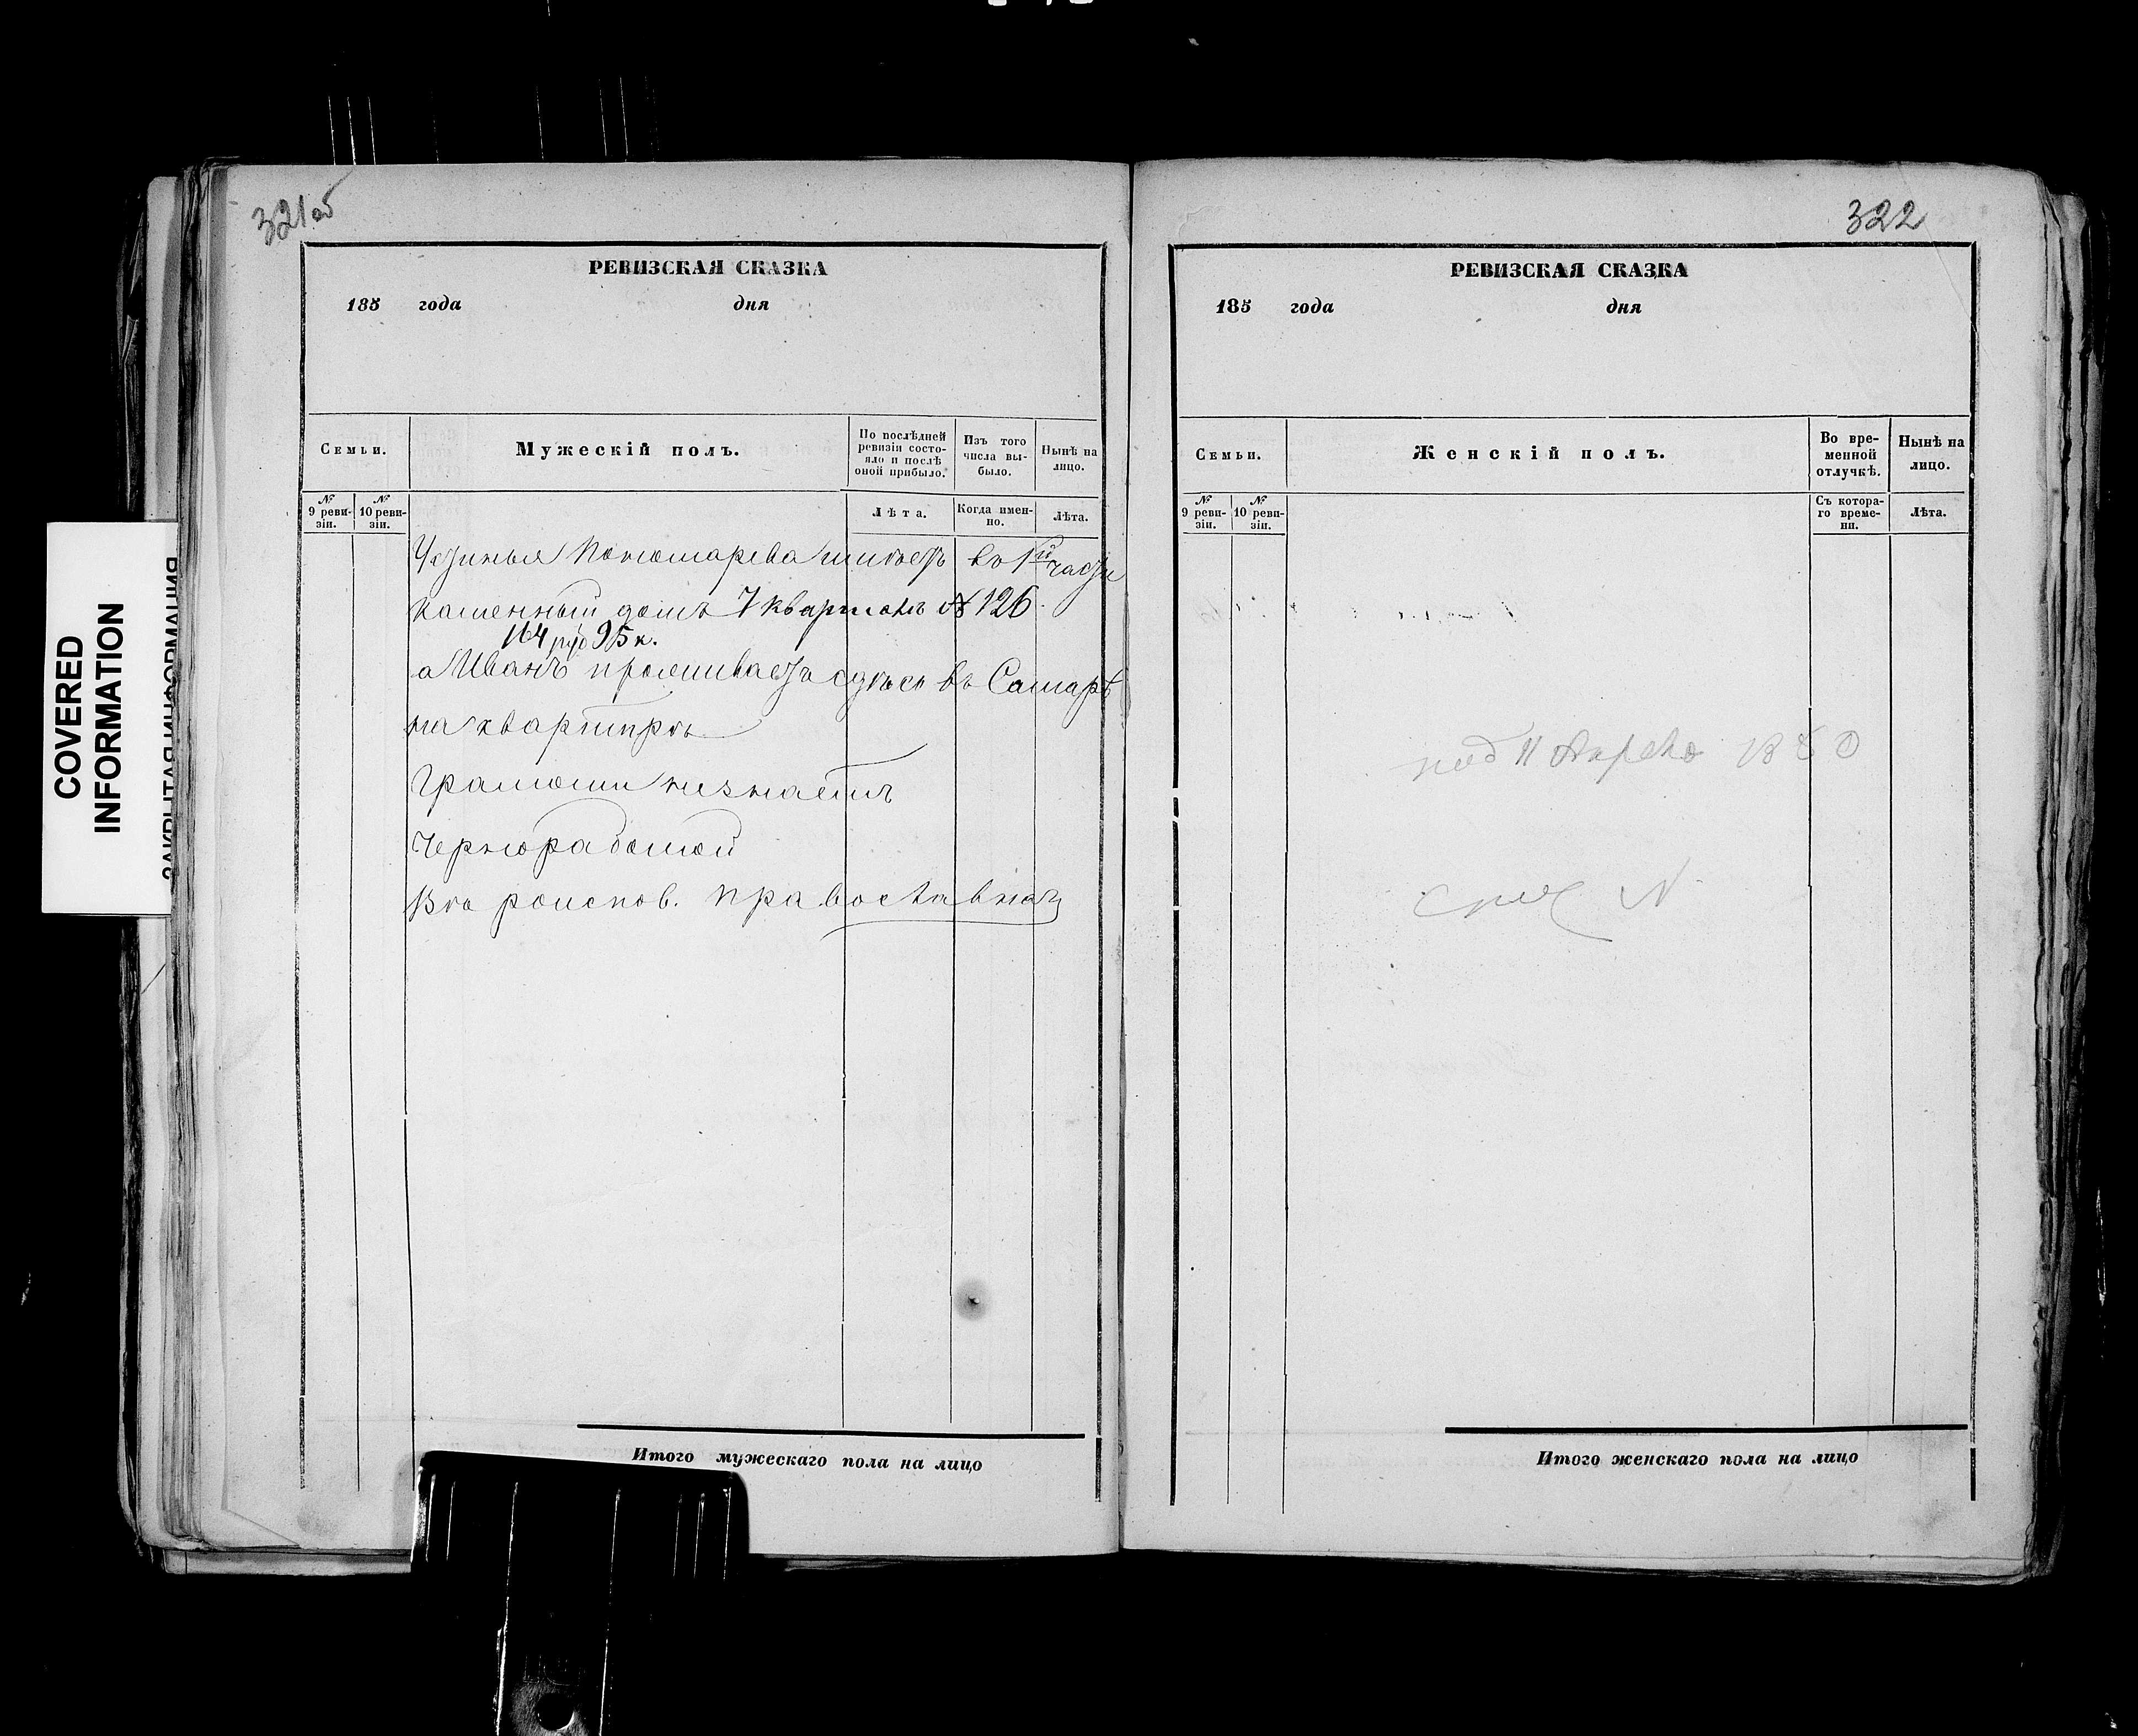 321об
РЕВИЗСКАЯ СКАЗКА
185 года дня
Семьи.
Мужескій полъ.
По послѣдней ревизіи состояло и послѣ оной прибыло.
Изъ того числа выбыло.
Нынѣ на лицо.
№ 9 ревизіи.
№ 10 ревизіи.
Лѣта.
Когда именно.
Лѣта.
Устинья Пономарева имѣетъ въ 1й части
каменный домъ 7 кварталъ № 126
164 руб 95 к.
а Иванъ проживаетъ здѣсь въ Самарѣ
на квартирѣ
Грамоти незнаетъ
Чернорабочій
Вѣроиспов. православнаг
Итого мужескаго пола на лицо
322
РЕВИЗСКАЯ СКАЗКА
185 года дня
Семьи.
Женскій полъ.
Во временной отлучкѣ.
Нынѣ на лицо.
№ 9 ревизіи.
№ 10 ревизіи.
Съ котораго времени.
Лѣта.
Итого женскаго пола на лицо
COVERED
INFORMATION
ЗАКРЫТАЯ ИНФОРМАЦИЯ